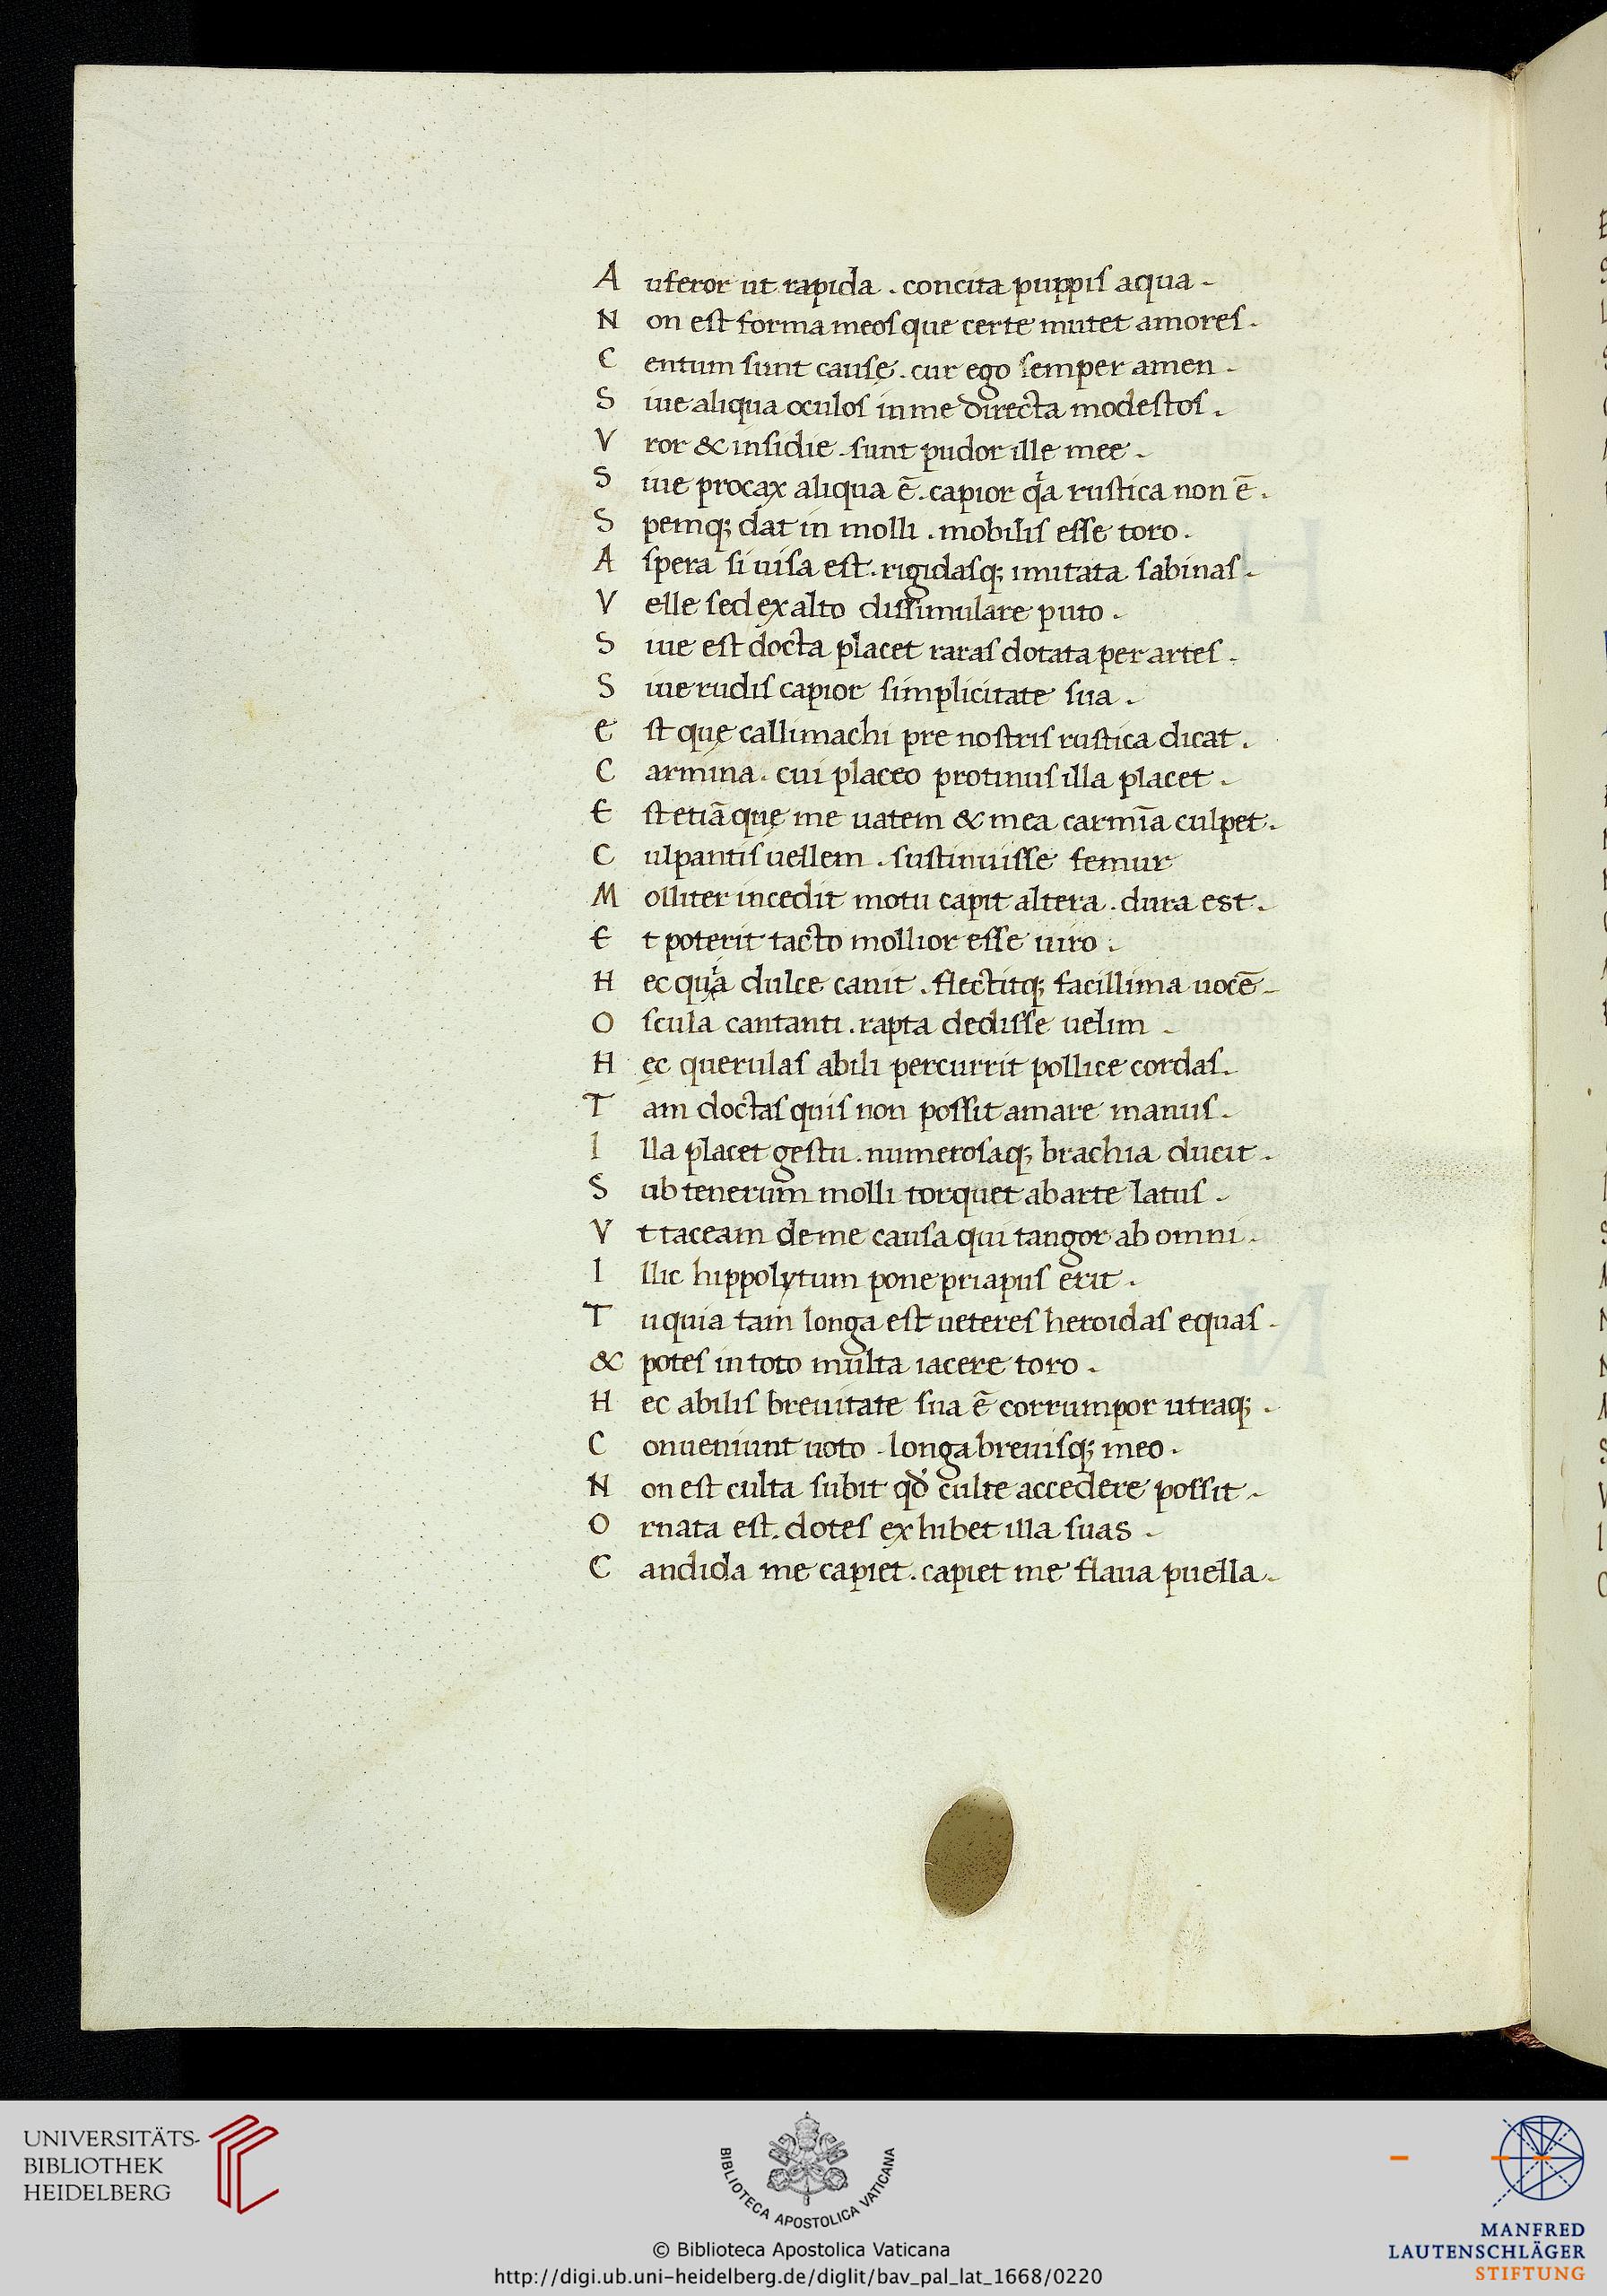 Auferor ut rapida . concita puppis aqua .
Non est forma meos que certe mutet amores .
Centum sunt cause . cur ego semper amen .
Siue aliqua oculos in me directa modestos .
Vror & insidie . sunt pudor ille mee .
Siue procax aliqua ē . capior qa rustica non ē .
Spemq; dat in molli . mobilis esse toro .
Aspera si uisa est . rigidasq; imitata sabinas .
Velle sed ex alto dissimulare puto .
Siue est docta placet raras dotata per artes .
Siue rudis capior simplicitate sua .
Est que callimachi pre nostris rustica dicat .
Carmina . cui placeo protinus illa placet .
Est etiā que me uatem & mea carmīa culpet .
Culpantis uellem . sustinuisse femur
Molliter incedit motu capit altera . dura est .
Et poterit tacto mollior esse uiro .
Hec qua dulce canit . flectitq; facillima uocē .
Oscula cantanti . rapta dedisse uelim .
Hęc querulas abili percurrit pollice cordas .
Tam doctas quis non possit amare manus .
Illa placet gestu . numerosaq; brachia ducit .
Sub tenerum molli torquet ab arte latus .
Vt taceam de me causa qui tangor ab omni .
Illic hippolytum pone priapus erit .
Tu quia tam longa est ueteres heroidas equas .
& potes in toto multa iacere toro .
Hec abilis breuitate sua ē corrumpor utraq; .
Conueniunt uoto . longa breuisq; meo .
Non est culta subit qđ culte accedere possit .
Ornata est . dotes exhibet illa suas .
Candida me capiet . capiet me flaua puella .
UNIVERSITÄTS-
BIBLIOTHEK
HEIDELBERG
BIBLIOTECA APOSTOLICA VATICANA
© Biblioteca Apostolica Vaticana
http://digi.ub.uni-heidelberg.de/diglit/bav_pal_lat_1668/0220
MANFRED
LAUTENSCHLÄGER
STIFTUNG